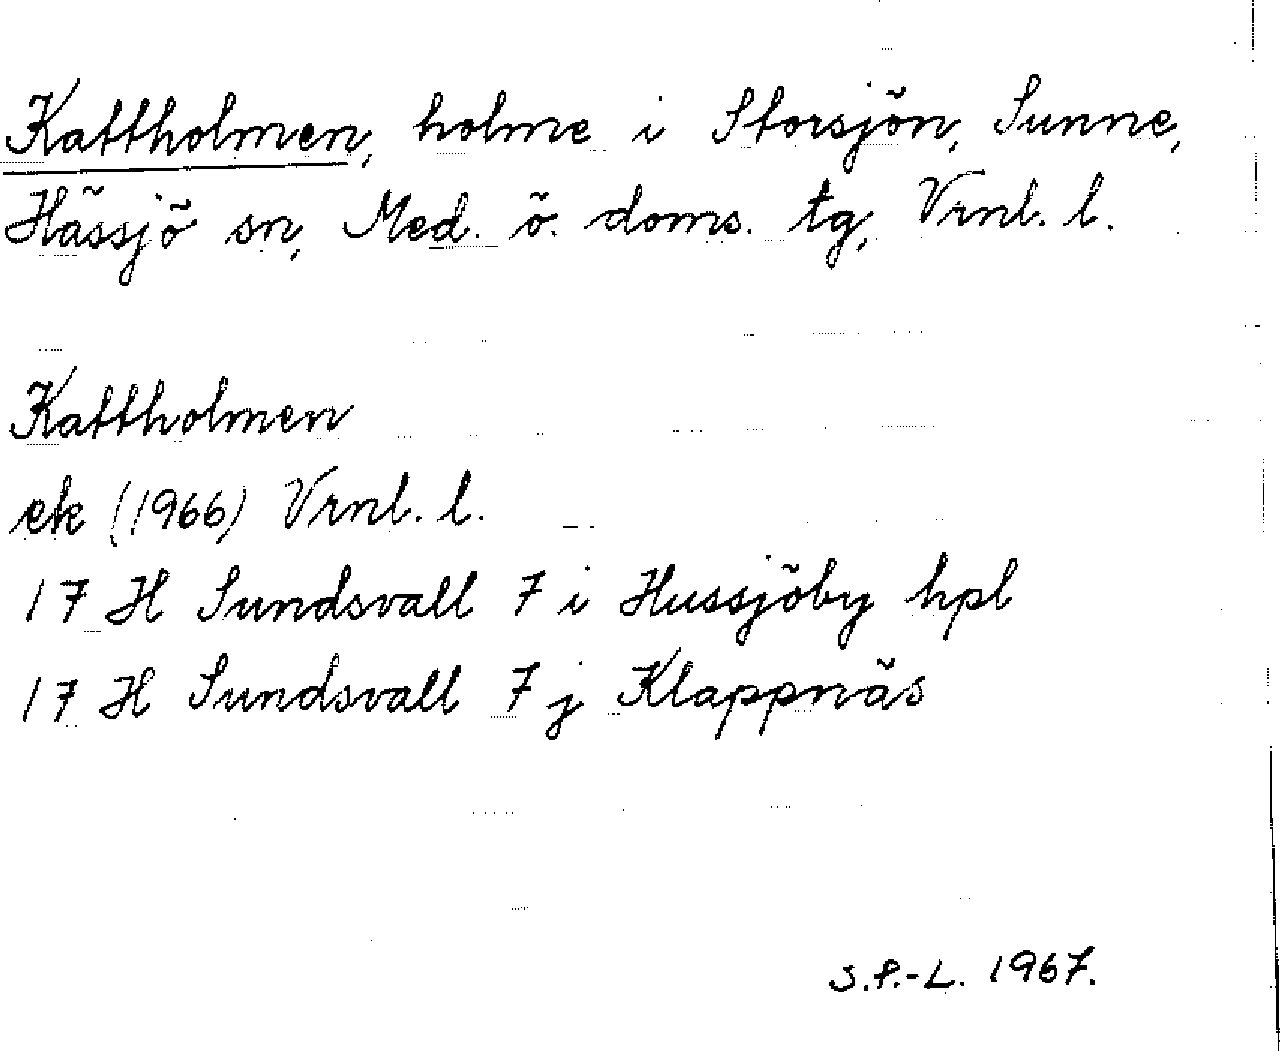 Kattholmen, holme i Storsjön, Sunne,
Hässjö sn, Med. ö. doms. tg, Vrnl. l.
Kattholmen
ek (1966) Vrnl. l.
17 H Sundsvall 7 i Hussjöby hpl
17 H Sundsvall 7 j Klappnäs
S.P.-L. 1967.